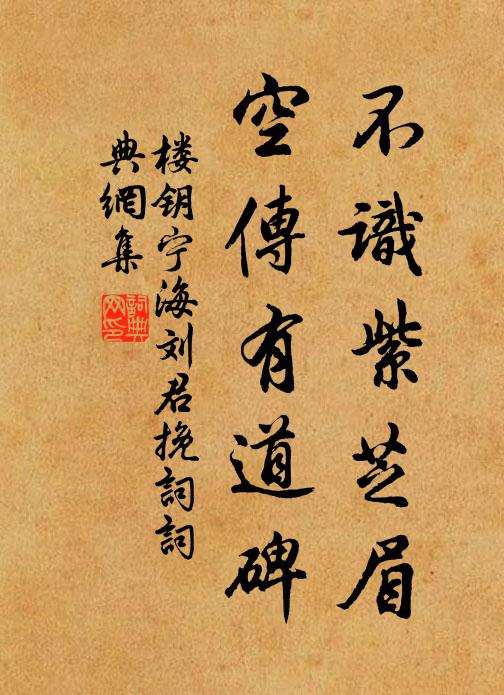 不識紫芝眉
空傳有道碑
楼钥宁海刘君挽詞詞
典網集
詞典网印